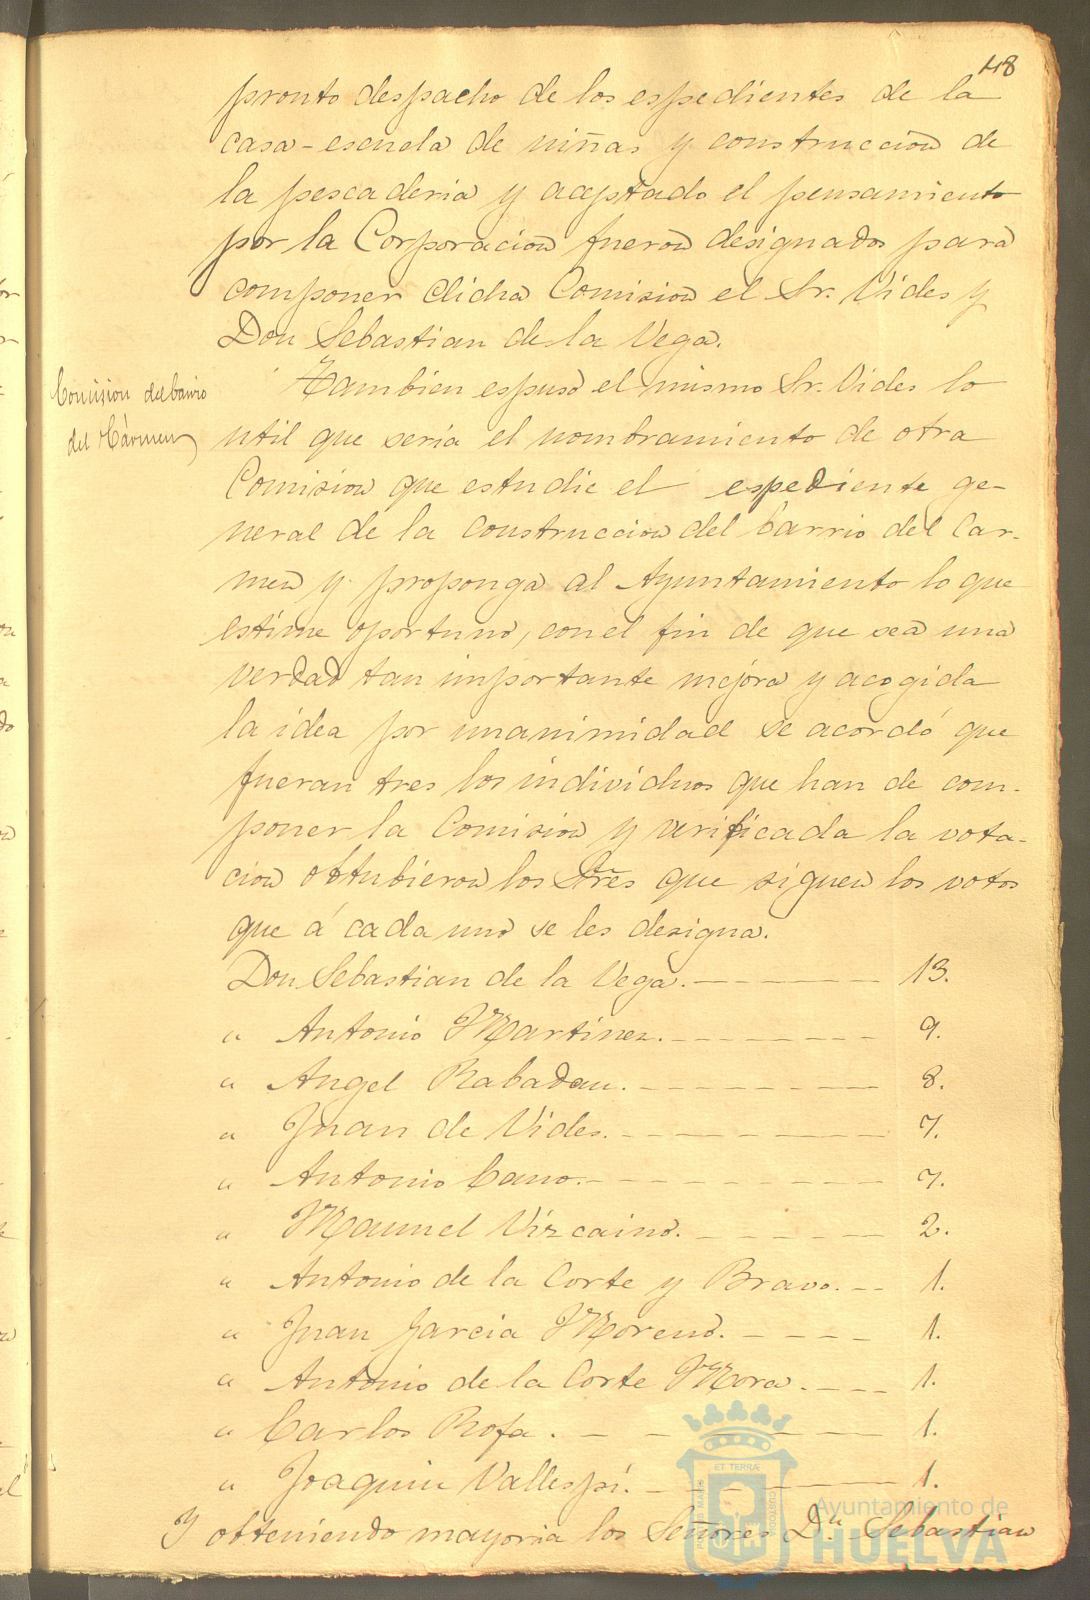 48
pronto despacho de los espedientes de la
casa-escuela de niñas y construccion de
la pescaderia y aceptado el pensamiento
por la Corporacion fueron designados para
componer dicha Comision el Sr. Vides y
Don Sebastian de la Vega.
Comision del barrio
del Cármen
Tambien espuso el mismo Sr. Vides lo
util que seria el nombramiento de otra
Comision que estudie el espediente ge-
neral de la construccion del barrio del Car-
men y proponga al Ayuntamiento lo que
estime oportuno, con el fin de que sea una
verdad tan importante mejora y acogida
la idea por unanimidad se acordó que
fueran tres los individuos que han de com-
poner la Comision y verificada la vota-
cion obtubieron los Sres que siguen los votos
que á cada uno se les designa.
Don Sebastian de la Vega. 13.
" Antonio Martinez. 9.
" Angel Rabadan. 8.
" Juan de Vides. 7.
" Antonio Cano. 7.
" Manuel Vizcaino. 2.
" Antonio de la Corte y Bravo. 1.
" Juan Garcia Moreno. 1.
" Antonio de la Corte Mora. 1.
" Carlos Rofa. 1.
" Joaquin Vallespí. 1.
Y obteniendo mayoria los Señores Dn Sebastian
Ayuntamiento de
HUELVA